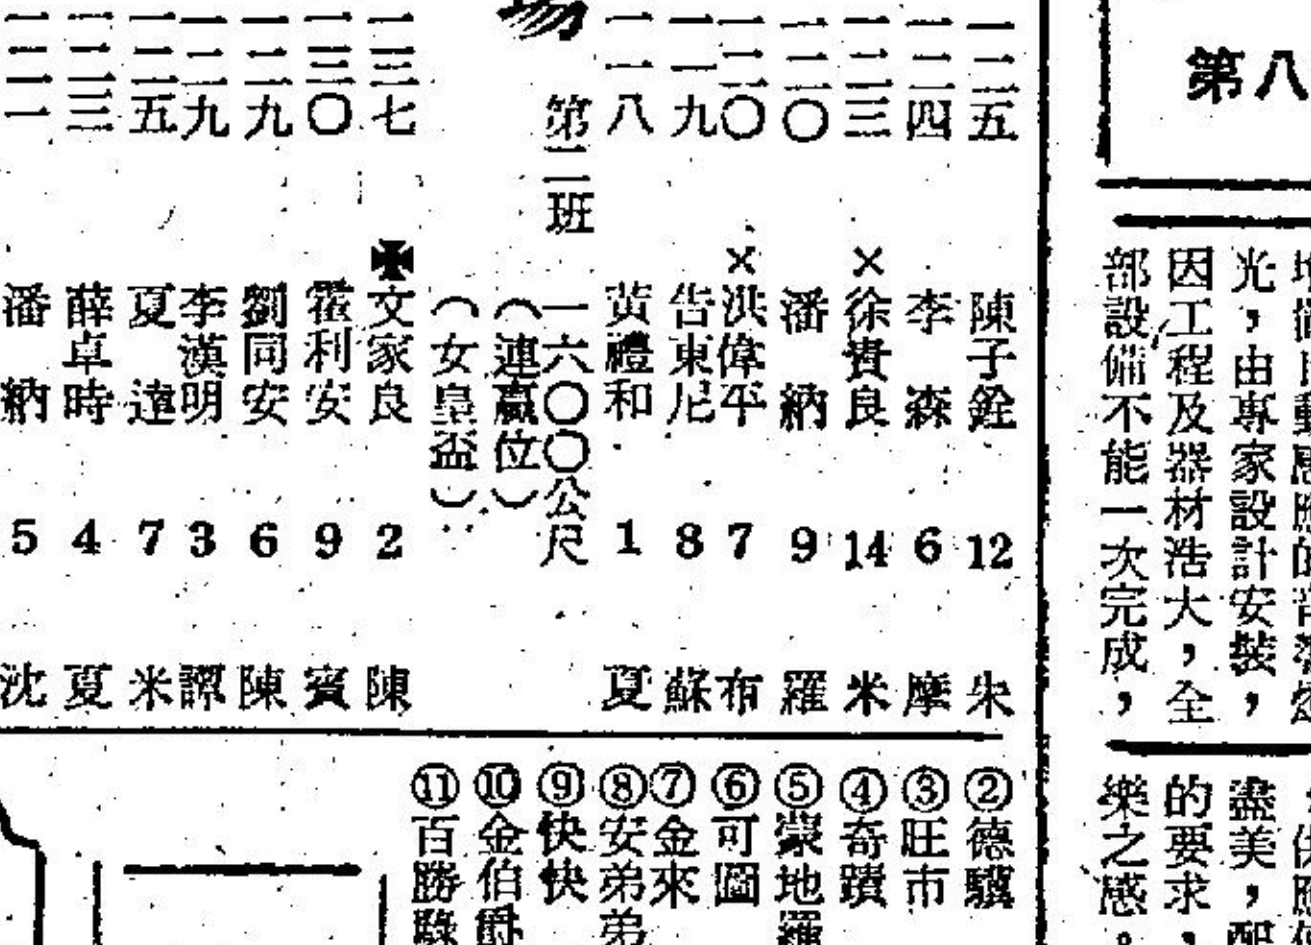 第八
光，由專家設計安裝，
因工程及器材浩大，全
部設備不能一次完成，
盡美，配
的要求，
樂之感。
一二五 陳子銓 12 朱
一二四 李森 6 摩
一二三 ×徐貴良 14 米
一二〇 潘納 9 羅
一二〇 ×洪偉平 7 布
一一九 告東尼 8 蘇
一一八 黃禮和 1 夏
第二班 一六〇〇公尺
（連贏位）
（女皇盃）
場
一三七 ✠文家良 2 陳
一三〇 霍利安 9 賓
一二九 劉同安 6 陳
一二九 李漢明 3 譚
一二五 夏達 7 米
一二三 薛卓時 4 夏
一二一 潘納 5 沈
②德驥
③旺市
④奇蹟
⑤蒙地羅
⑥可圖
⑦金來
⑧安弟弟
⑨快快
⑩金伯爵
⑪百勝